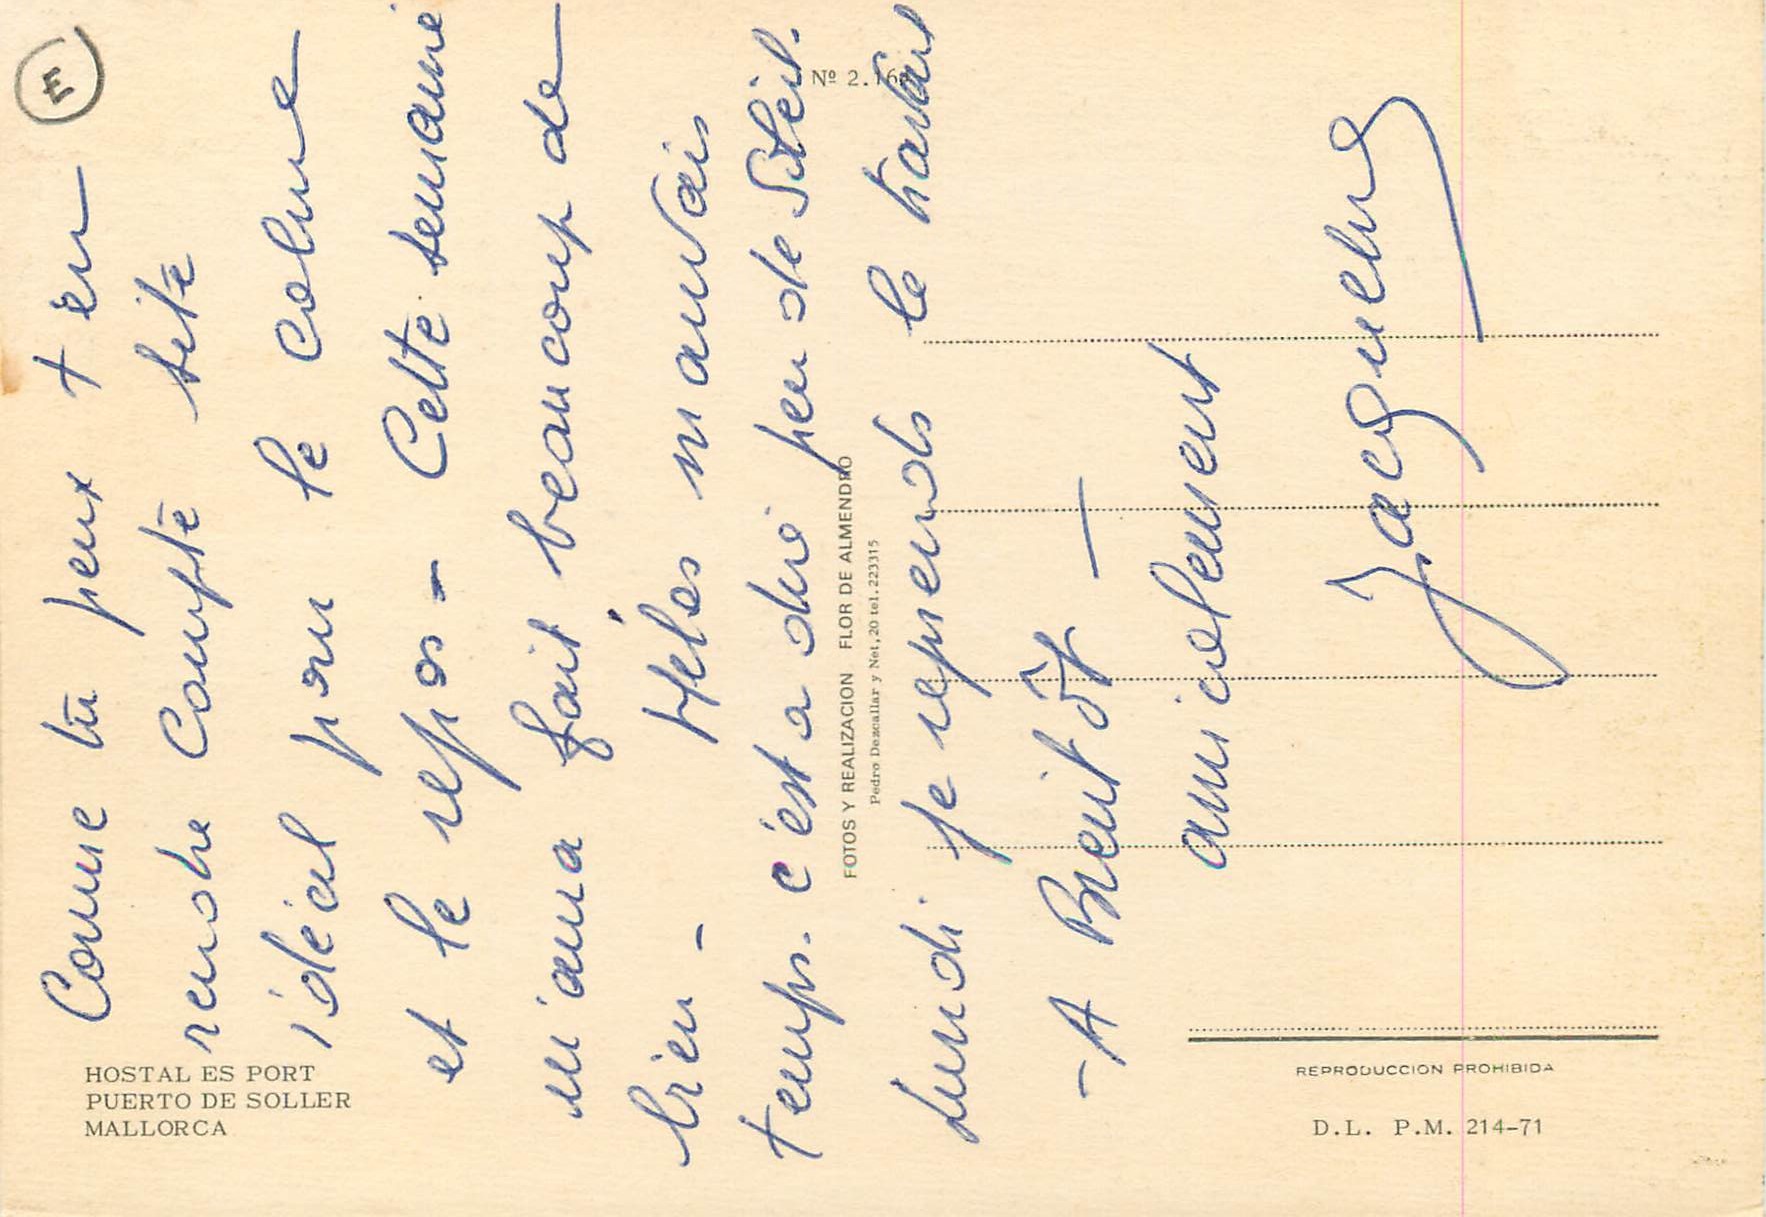 E
Comme tu peux t en
rendre compte site
idéal pour le calme
et le repos - Cette semaine
m'aura fait beaucoup de
bien - Hélas mauvais
temps. c'est a dire peu de Soleil.
Lundi je reprends le travail
- A Bientôt -
amicalement
Jacqueline
HOSTAL ES PORT
PUERTO DE SOLLER
MALLORCA
Nº 2.
FOTOS Y REALIZACION FLOR DE ALMENDRO
Pedro Dezcallar y Net, 20 tel. 223315
REPRODUCCION PROHIBIDA
D.L. P.M. 214-71